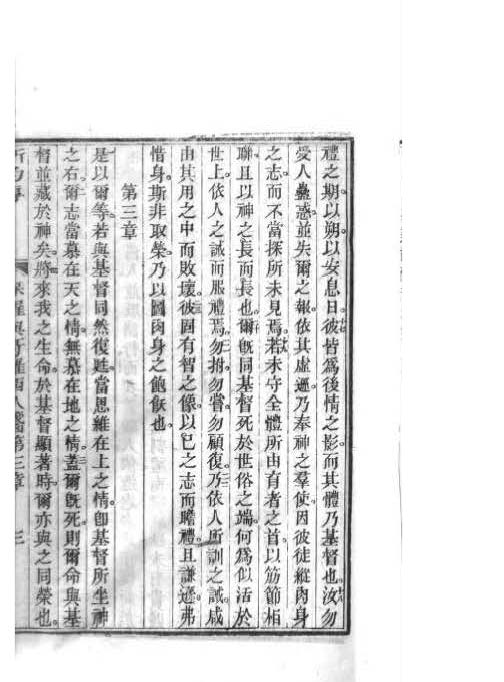 禮之期以朔以安息日彼皆爲後情之影而其體乃基督也汝勿
受人蠱惑並失爾之報依其虛遜乃奉神之羣使因彼徒縱肉身
之志而不當探所未見焉若未守全體所由育者之首以筋節相
聯且以神之長而長也爾旣同基督死於世俗之端何爲似活於
世上依人之誡而服禮焉勿拊勿嘗勿顧復乃依人所訓之誡咸
由其用之中而敗壞彼固有智之像以己之志而瞻禮且謙遜弗
惜身斯非取榮乃以圖肉身之飽飫也
第三章
是以爾等若與基督同然復甦當思維在上之情卽基督所坐神
之右爾志當慕在天之情無慕在地之情蓋爾旣死則爾命與基
督並藏於神矣將來我之生命於基督顯著時爾亦與之同榮也
人書第三章 三